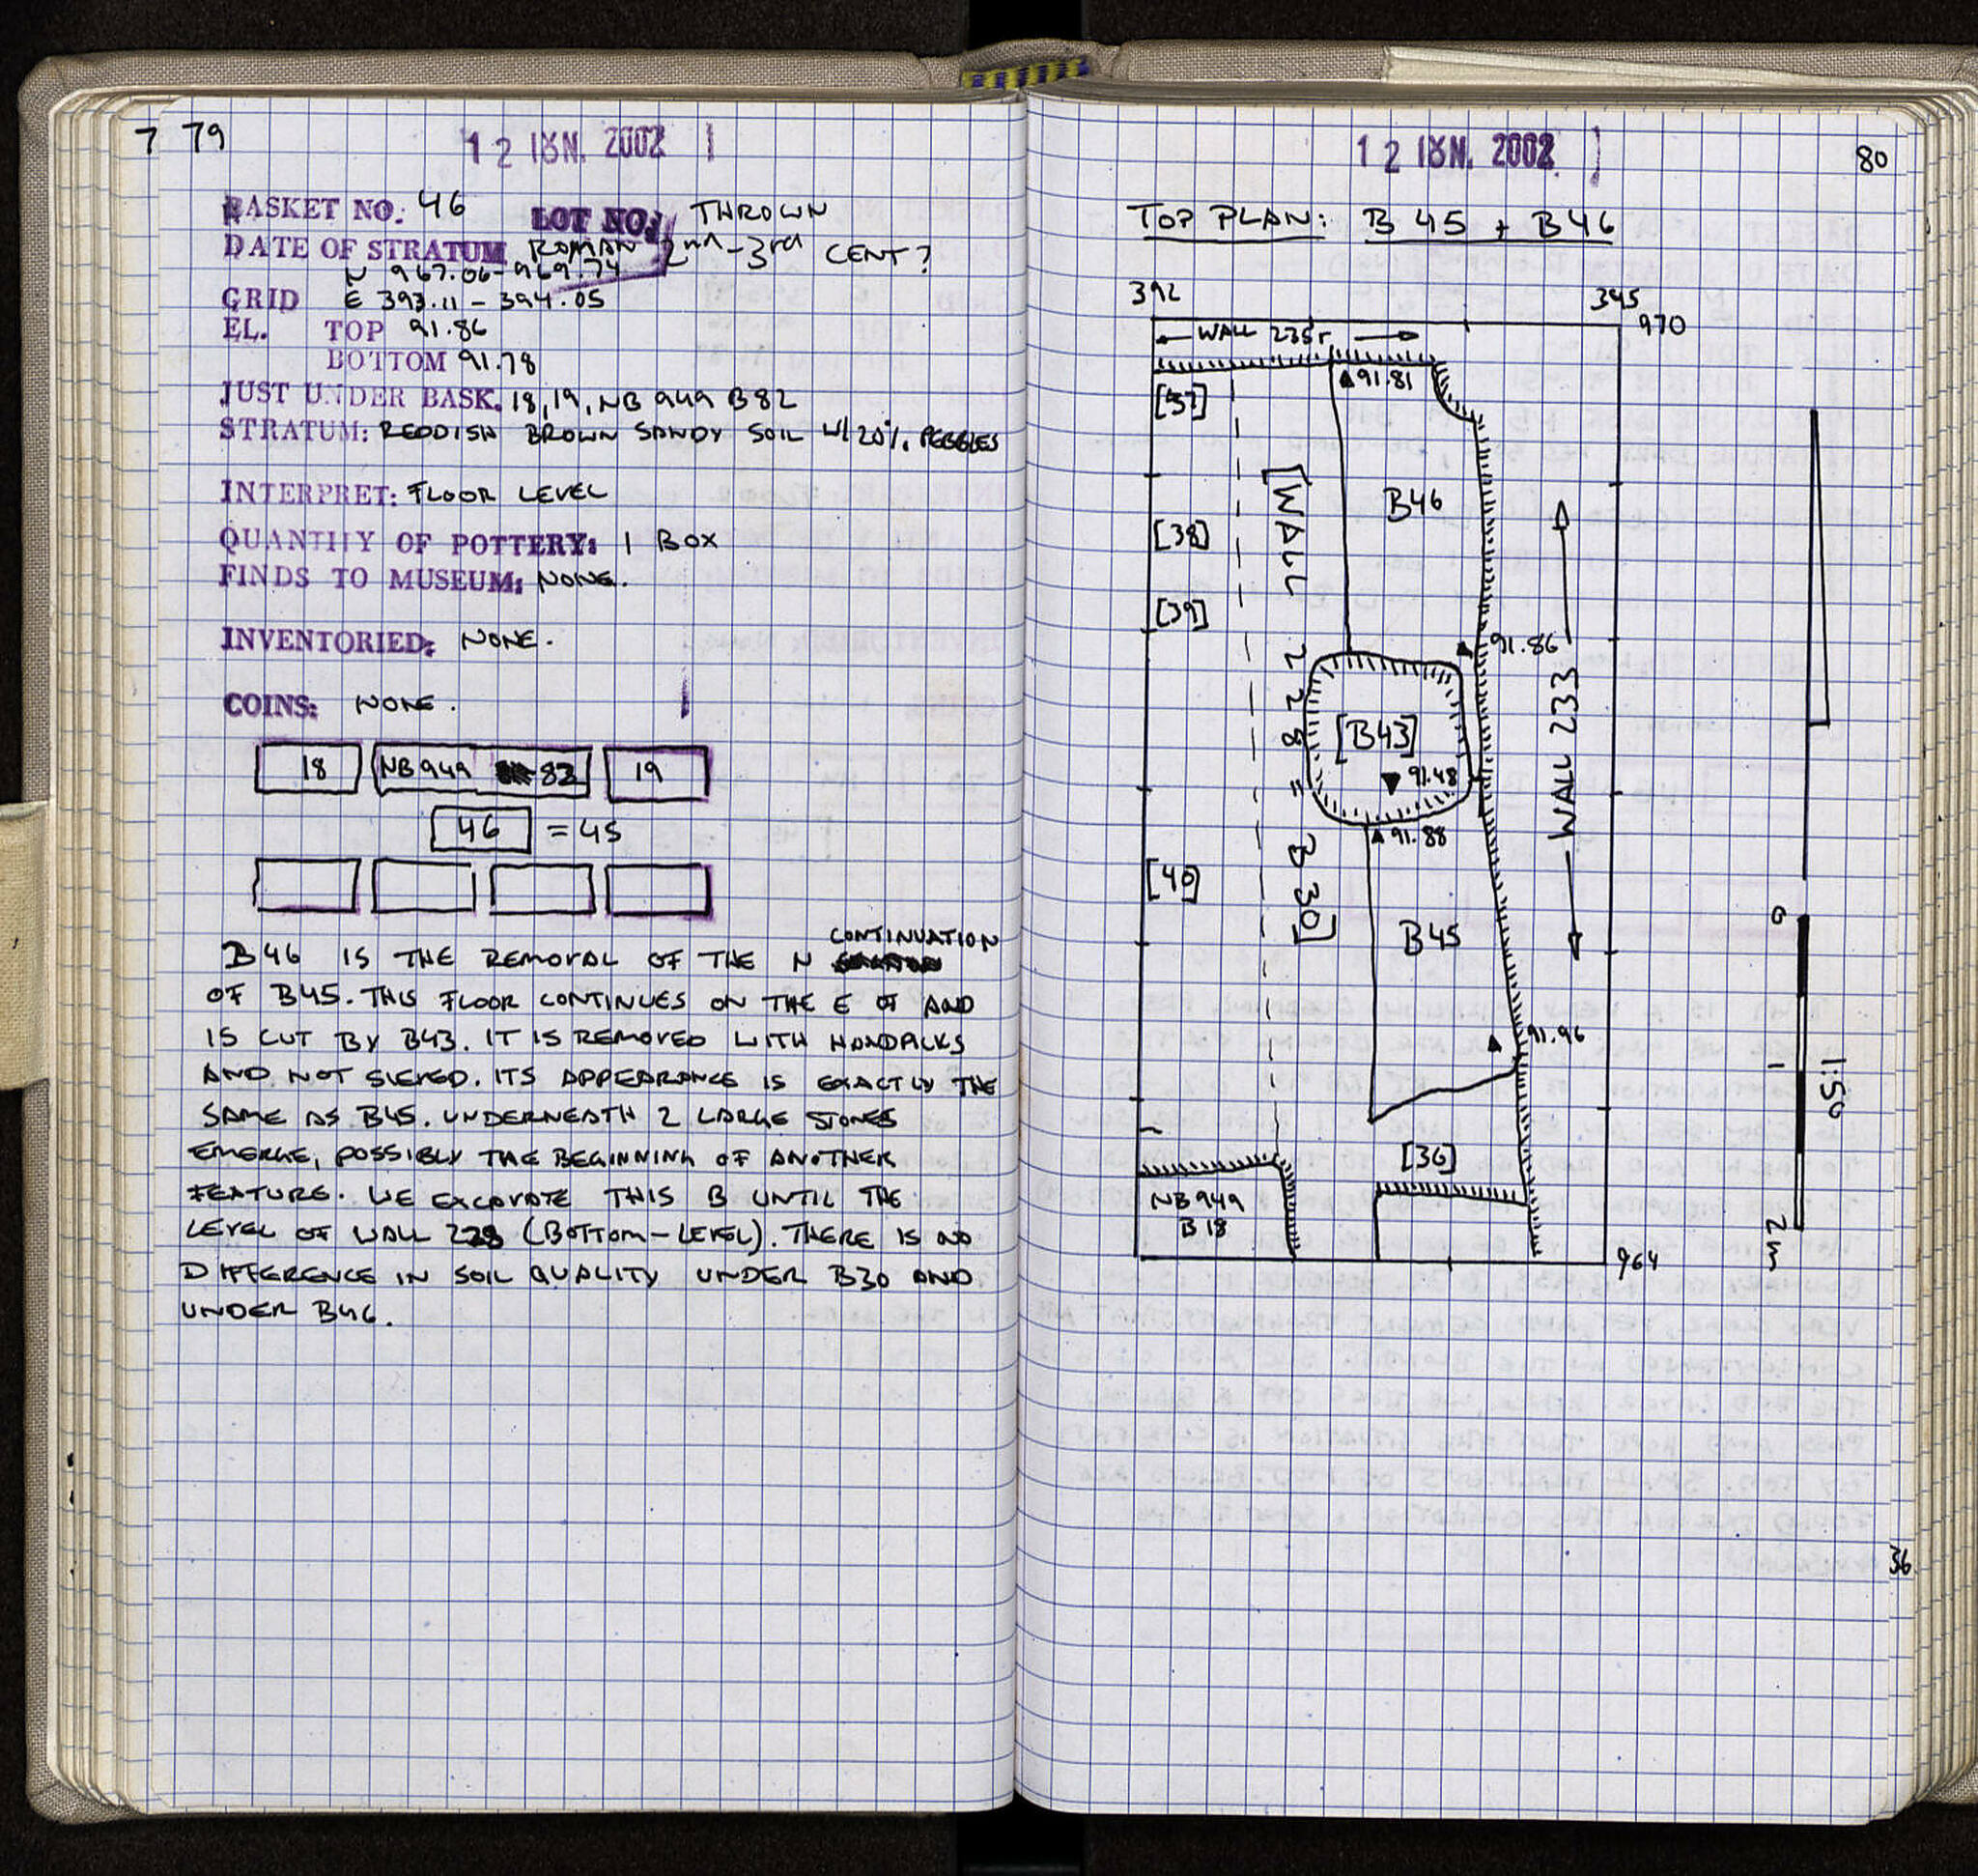 7 79
12 IUN. 2002
BASKET NO. 46 LOT NO. THROWN
DATE OF STRATUM ROMAN 2nd-3rd CENT?
N 967.06-969.74
GRID E 393.11-394.05
EL. TOP 91.86
BOTTOM 91.78
JUST UNDER BASK. 18, 19, NB 949 B82
STRATUM: REDDISH BROWN SANDY SOIL W/20% PEBBLES
INTERPRET: FLOOR LEVEL
QUANTITY OF POTTERY: 1 BOX
FINDS TO MUSEUM: NONE.
INVENTORIED: NONE.
COINS: NONE.
18 NB 949 82 19
46 = 45
B46 IS THE REMOVAL OF THE N CONTINUATION
OF B45. THIS FLOOR CONTINUES ON THE E OF AND
IS CUT BY B43. IT IS REMOVED WITH HANDPICKS
AND NOT SIEVED. ITS APPEARANCE IS EXACTLY THE
SAME AS B45. UNDERNEATH 2 LARGE STONES
EMERGE, POSSIBLY THE BEGINNING OF ANOTHER
FEATURE. WE EXCAVATE THIS B UNTIL THE
LEVEL OF WALL 228 (BOTTOM-LEVEL). THERE IS NO
DIFFERENCE IN SOIL QUALITY UNDER B30 AND
UNDER B46.
12 IUN. 2002
80
TOP PLAN: B 45 + B46
392 345
970
WALL 235
91.81
[37]
[WALL 228 = B 30]
B46
[38]
[39]
91.86
WALL 233
[B43]
91.48
91.88
[40]
B45
91.96
[36]
NB 949
B 18
964
0
1
2m
1:50
36